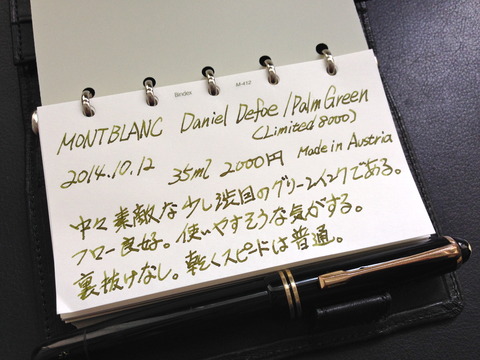 Bindex M-412
MONTBLANC Daniel Defoe / Palm Green
(Limited 8000)
2014.10.12 35ml 2000円 Made in Austria
中々素敵な少し渋目のグリーンインクである。
フロー良好。使いやすそうな気がする。
裏抜けなし。乾くスピードは普通。